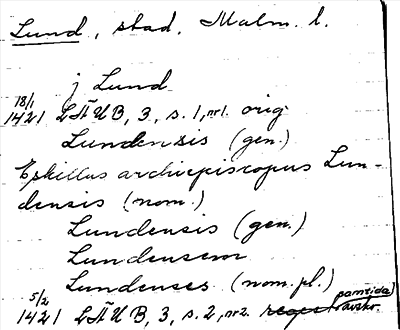 Lund, stad, Malm. l.
j Lund
18/1
1421 LÄUB, 3, s. 1, nr 1. orig
Lundensis (gen.)
Eskillus archiepiscopus Lun-
densis (nom.)
Lundensis (gen.)
Lundensem
Lundenses (nom. pl.)
5/2 samtida
1421 LÄUB, 3, s. 2, nr 2. avskr.